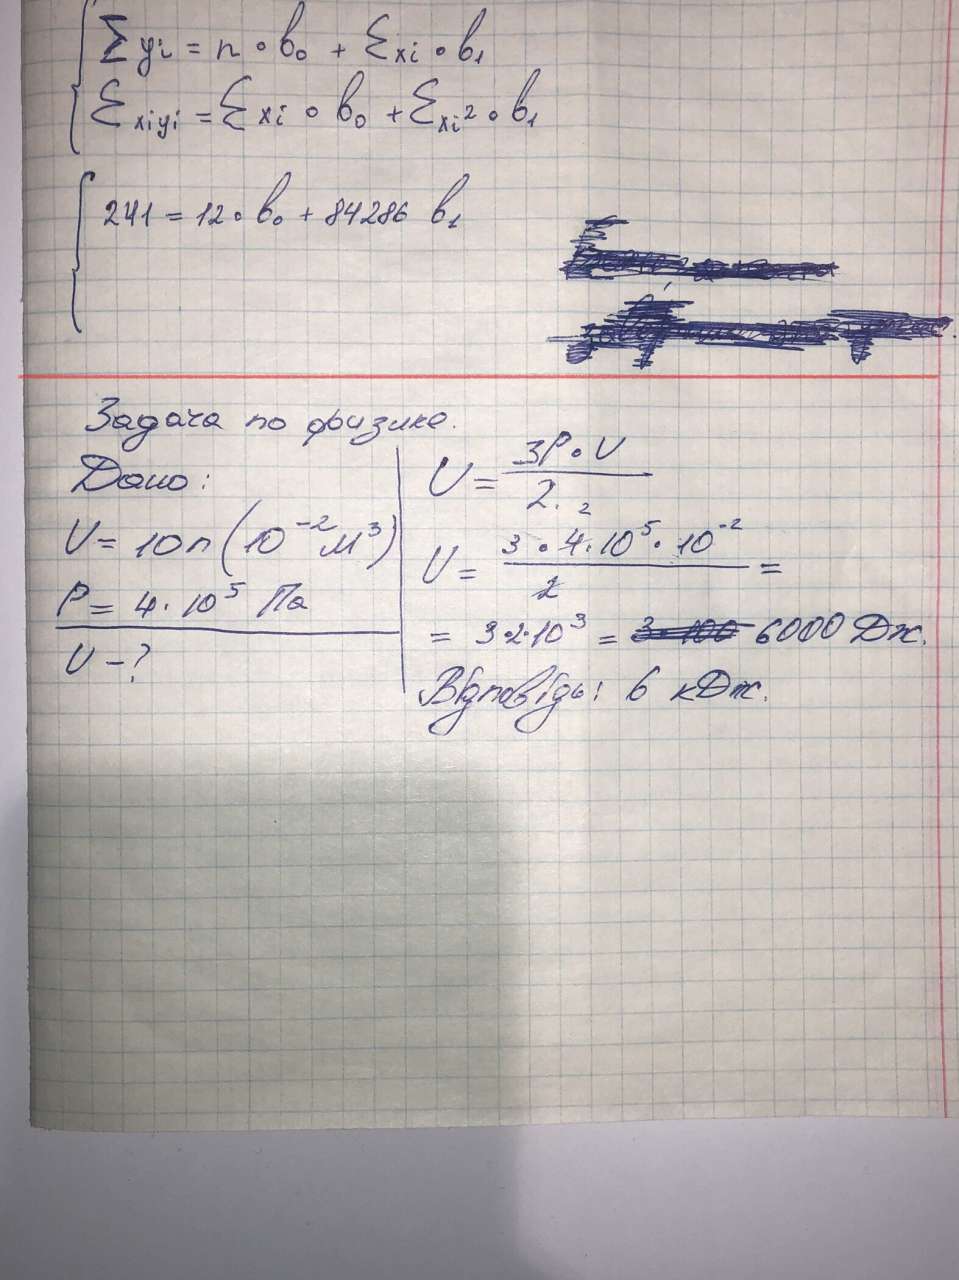 Σyi = n∘b₀ + Σxi∘b₁
Σxiyi = Σxi∘b₀ + Σxi²∘b₁
241 = 12∘b₀ + 84286 b₁
Задача по физике.
Дано:
V = 10л (10⁻² м³)
P = 4·10⁵ Па
U - ?
U = 3P∘V / 2.
U = 3·4·10⁵·10⁻² / 2 =
= 3·2·10³ = 6000 Дж.
Відповідь: 6 кДж.